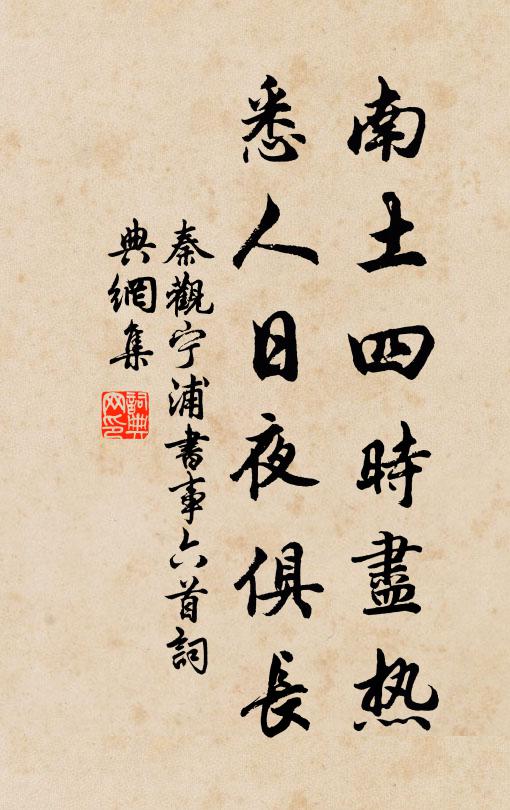 南土四時盡热
悉人日夜俱長
秦觀宁浦書事六首詞
典網集
詞典
网印